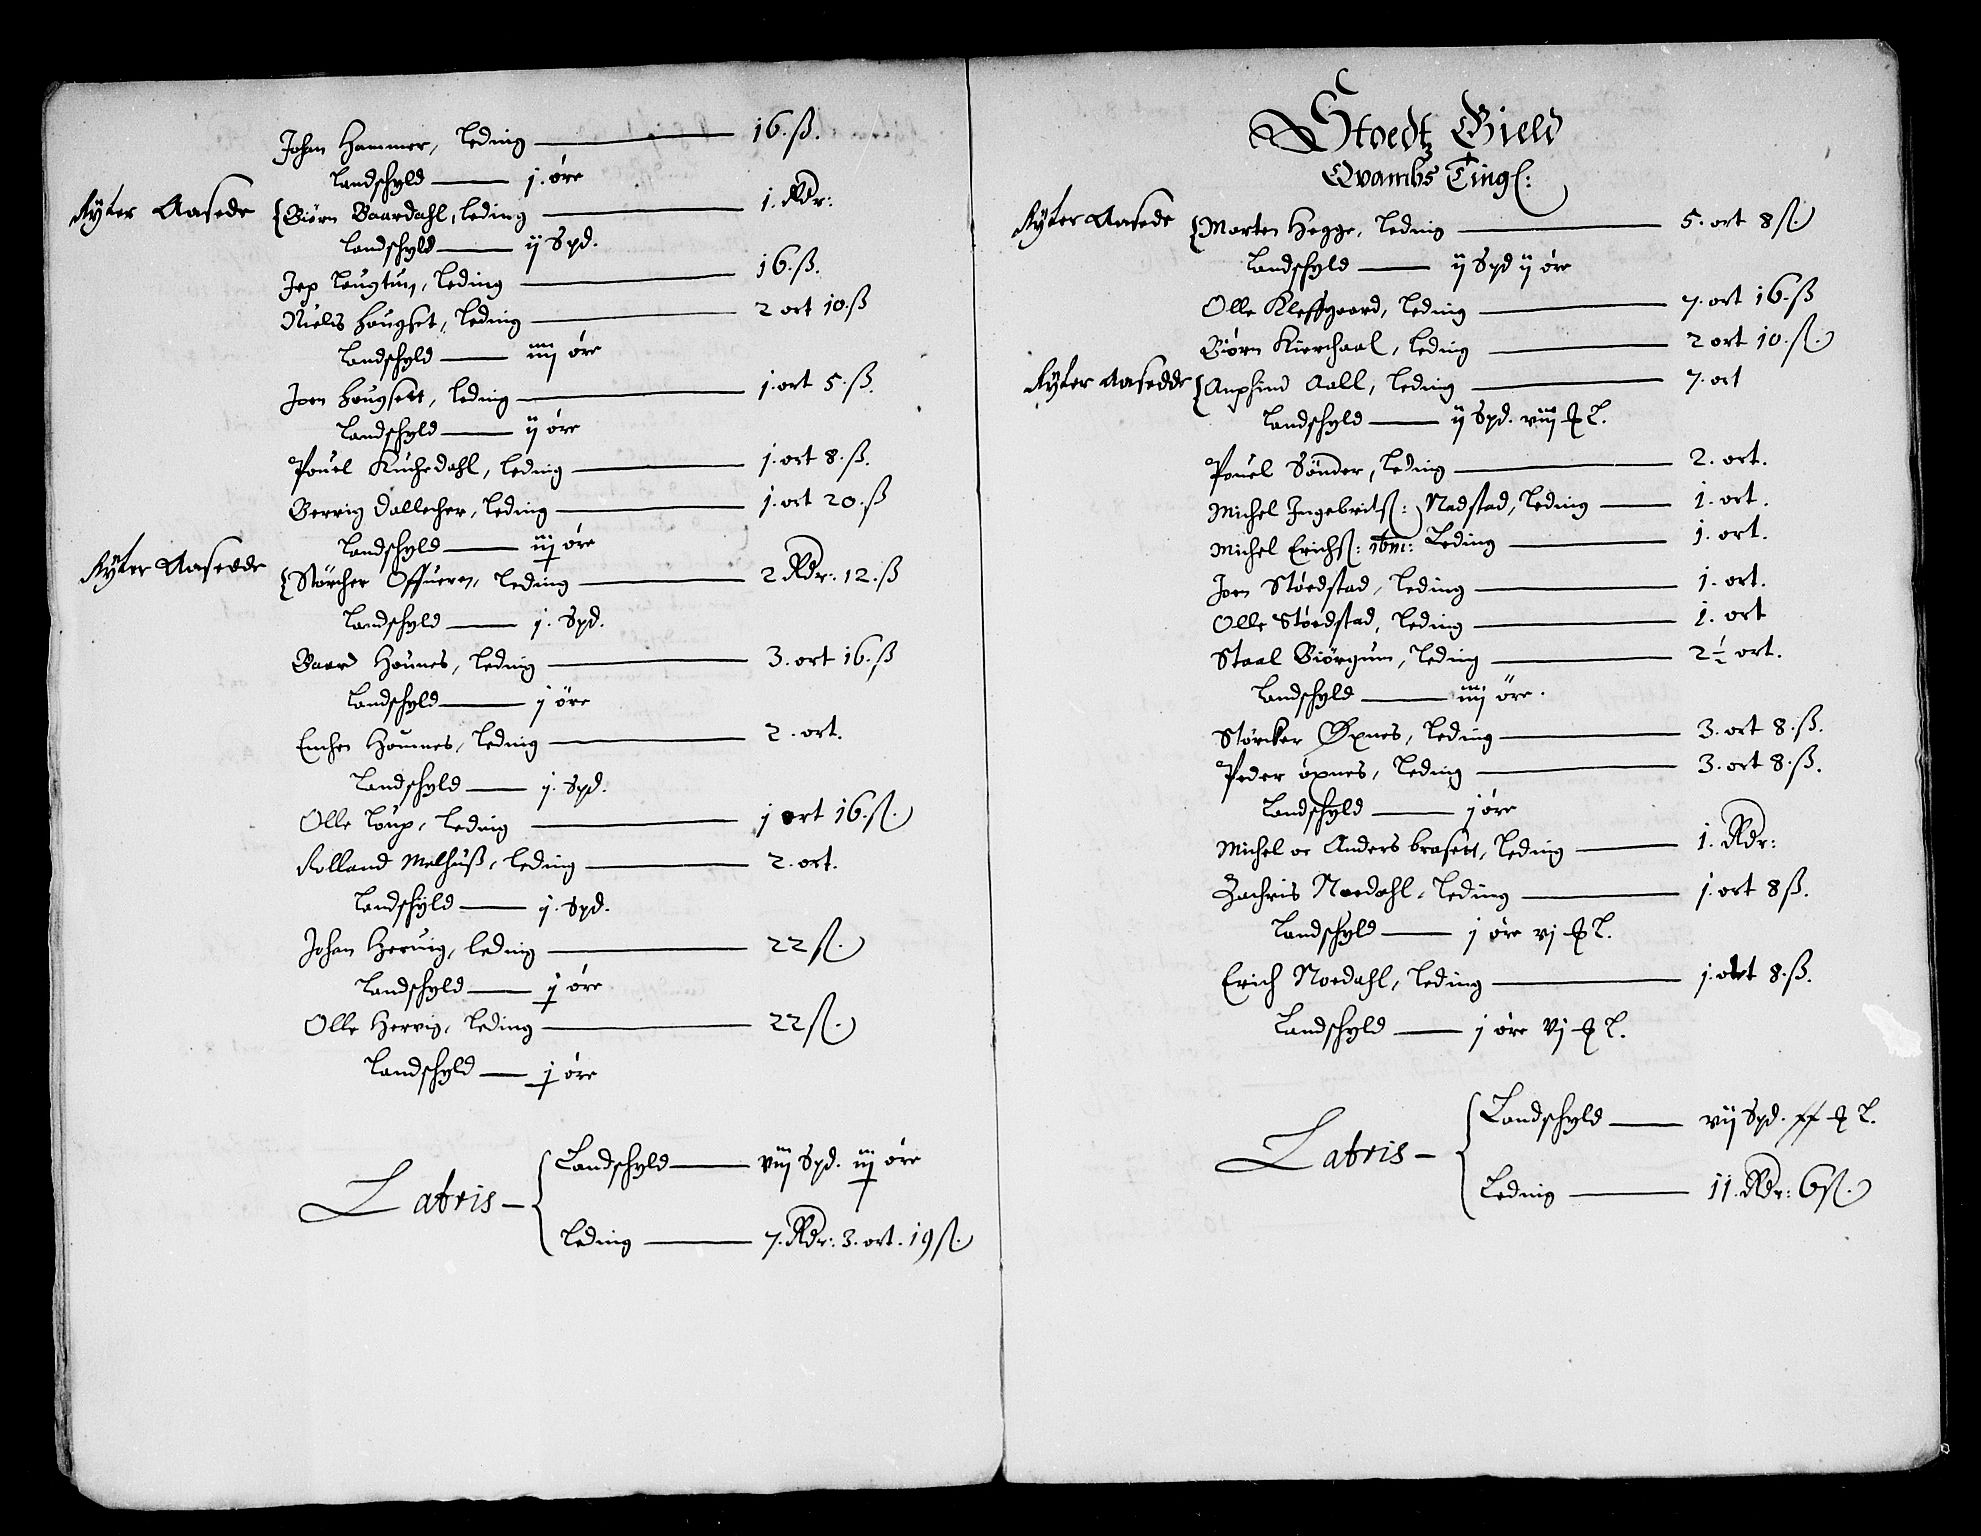 Johan Hammer, Leding — 16. ß.
Landschyld — j. øre
Ryter Aasede {Biørn Baardahl, Leding — 1. Rdr:
Landschyld — ij Spd.
Jep Leugtun, Leding — 16. ß.
Niels Hougset, Leding — 2 ort 10. ß
Landschyld — iiij øre
Joen Hougsett, Leding — 1. ort 5. ß.
Landschyld — ij øre
Pouel Kuchedahl, Leding — 1. ort 8. ß.
Berrig Dallecher, Leding — 1. ort 20. ß
Landschyld — iij øre
Ryter Aasedde {Størcher Offueren, Leding — 2 Rdr: 12. ß
Landschyld — j. Spd.
Baard Hounes, Leding — 3. ort 16. ß
Landschyld — j øre
Emchen Houmnes, Leding — 2. ort.
Landschyld — j. Spd.
Olle Loup, Leding — 1 ort 16. ß.
Rolland Melhuß, Leding — 2. ort.
Landschyld — j. Spd.
Johan Heruig, Leding — 22 ß.
Landschyld — j øre
Olle Hervig, Leding — 22 ß.
Landschyld — j øre
Latris — { Landschyld — viij Spd. iij øre
Leding — 7. Rdr: 3. ort. 19 ß.
Stoedtz Gield
Qvambs Tingl:
Ryter Aasede {Morten Hegge, Leding — 5. ort 8 ß.
Landschyld — ij Spd ij øre
Olle Kleffgaard, Leding — 7. ort 16. ß
Biørn Kierchaal, Leding — 2 ort 10. ß.
Ryter Aasedde {Anphind Aall, Leding — 7. ort
Landschyld — ij Spd. viij ℔ L.
Pouel Sønder, Leding — 2. ort.
Michel Ingebritß: Nedstad, Leding — 1. ort.
Michel Erichß: ibm: Leding — 1. ort.
Joen Støedstad, Leding — 1. ort.
Olle Støedstad, Leding — 1. ort
Staal Biørgum, Leding — 2½ ort.
Landschyld — iiij øre.
Størcker Øxnes, Leding — 3. ort 8. ß.
Peder øxnes, Leding — 3. ort 8. ß.
Landschyld — j øre
Michel oc Anders brasett, Leding — 1. Rdr:
Zachris Noedahl, Leding — 1. ort 8 ß.
Landschyld — j øre vj ℔ L.
Erich Noedahl, Leding — 1. ort 8. ß.
Landschyld — j øre vj ℔ L.
Latris — { Landschyld — vij Spd. xx ℔ L.
Leding — 11. Rdr: 6 ß.